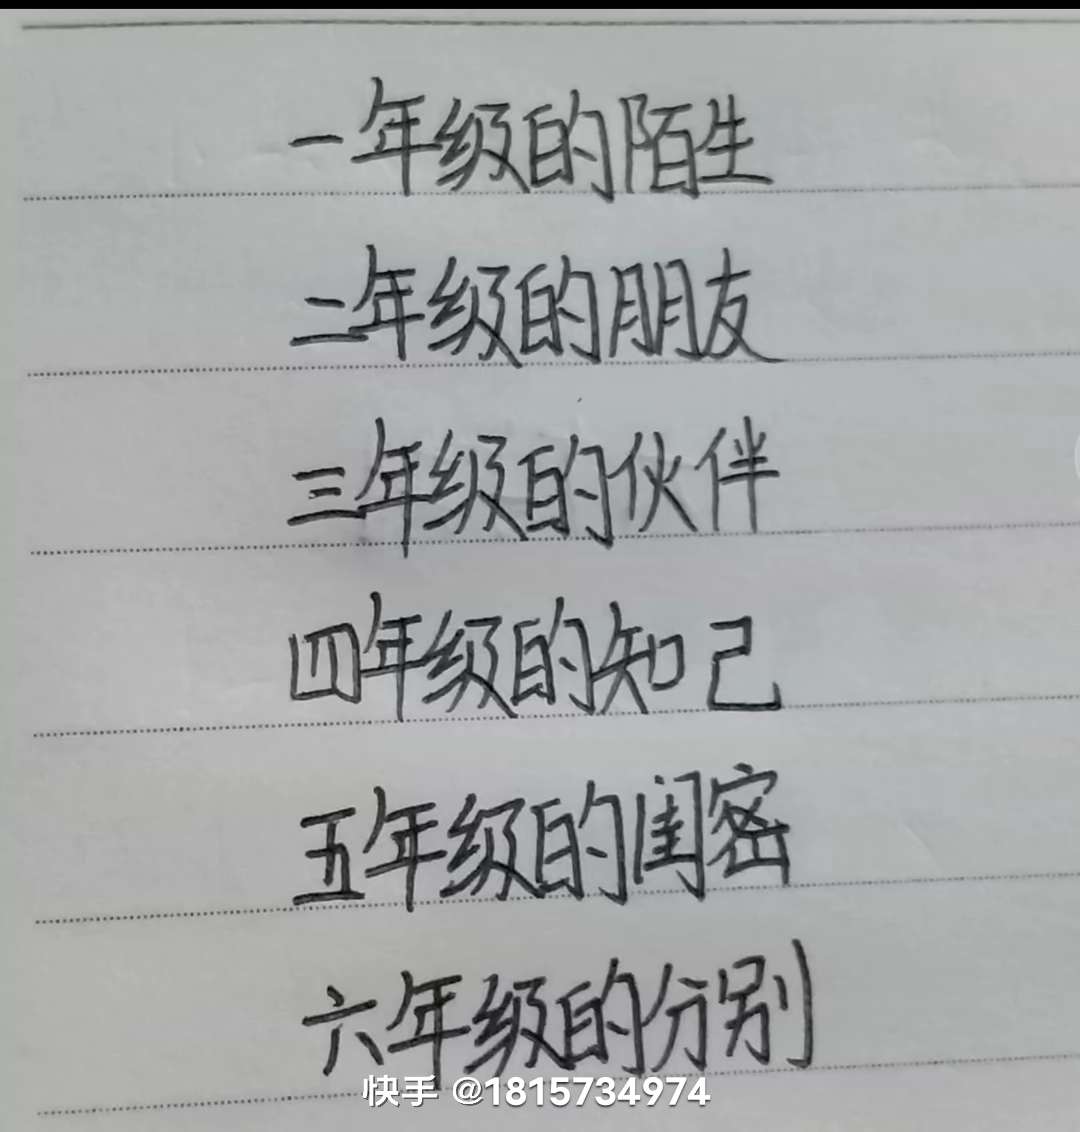 一年级的陌生
二年级的朋友
三年级的伙伴
四年级的知己
五年级的闺密
六年级的分别
快手 @1815734974